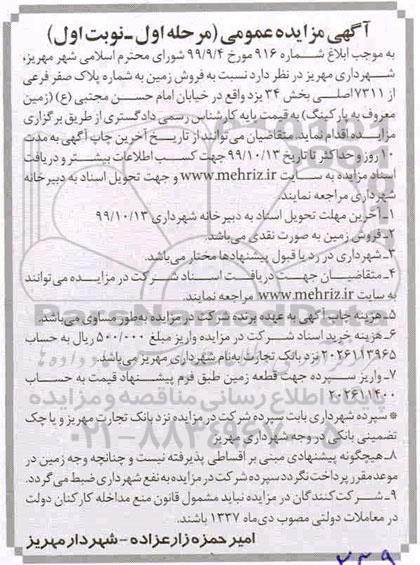 آگهی مزایده عمومی (مرحله اول ـ نوبت اول)
به موجب ابلاغ شماره ۹۱۶ مورخ ۹۹/۹/۴ شورای محترم اسلامی شهر مهریز،
شهرداری مهریز در نظر دارد نسبت به فروش زمین به شماره پلاک صفر فرعی
از ۷۳۱۱ اصلی بخش ۳۴ یزد واقع در خیابان امام حسن مجتبی (ع) (زمین
معروف به پارکینگ) به قیمت پایه کارشناس رسمی دادگستری از طریق برگزاری
مزایده اقدام نماید. متقاضیان می‌توانند از تاریخ آخرین چاپ آگهی به مدت
۱۰ روز و حداکثر تا تاریخ ۹۹/۱۰/۱۳ جهت کسب اطلاعات بیشتر و دریافت
اسناد مزایده به سایت www.mehriz.ir و جهت تحویل اسناد به دبیرخانه
شهرداری مراجعه نمایند.
۱ـ آخرین مهلت تحویل اسناد به دبیرخانه شهرداری ۹۹/۱۰/۱۳
۲ـ فروش زمین به صورت نقدی می‌باشد.
۳ـ شهرداری در رد یا قبول پیشنهادها مختار می‌باشد.
۴ـ متقاضیان جهت دریافت اسناد شرکت در مزایده می‌توانند
به سایت www.mehriz.ir مراجعه نمایند.
۵ـ هزینه چاپ آگهی به عهده برنده شرکت در مزایده به‌طور مساوی می‌باشد.
۶ـ هزینه خرید اسناد شرکت در مزایده واریز مبلغ ۵۰۰/۰۰۰ ریال به حساب
۲۰۲۶۱۱۳۹۶۵ نزد بانک تجارت به‌نام شهرداری مهریز می‌باشد.
۷ـ واریز سپرده جهت قطعه زمین طبق فرم پیشنهاد قیمت به حساب
۲۰۲۶۱۱۴۰۰
* سپرده شهرداری بابت سپرده شرکت در مزایده نزد بانک تجارت مهریز و یا چک
تضمینی بانکی در وجه شهرداری مهریز
۸ـ هیچگونه پیشنهادی مبنی بر اقساطی پذیرفته نیست و چنانچه وجه زمین در
موعد مقرر پرداخت نگردد سپرده شرکت در مزایده به نفع شهرداری ضبط می‌گردد.
۹ـ شرکت‌کنندگان در مزایده نباید مشمول قانون منع مداخله کارکنان دولت
در معاملات دولتی مصوب دی‌ماه ۱۳۳۷ باشند.
امیر حمزه زارعزاده - شهردار مهریز